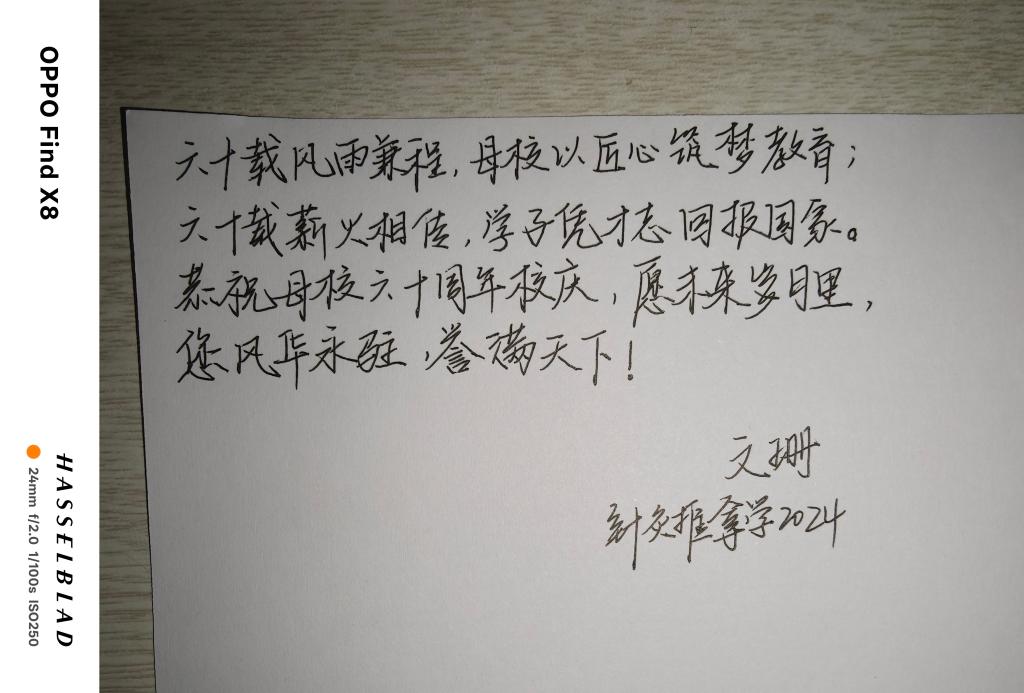 六十载风雨兼程,母校以匠心筑梦教育;
六十载薪火相传,学子凭才志回报国家。
恭祝母校六十周年校庆,愿未来岁月里,
您风华永驻,誉满天下!
文珊
針灸推拿学2024
OPPO Find X8
HASSELBLAD
24mm f/2.0 1/100s ISO250